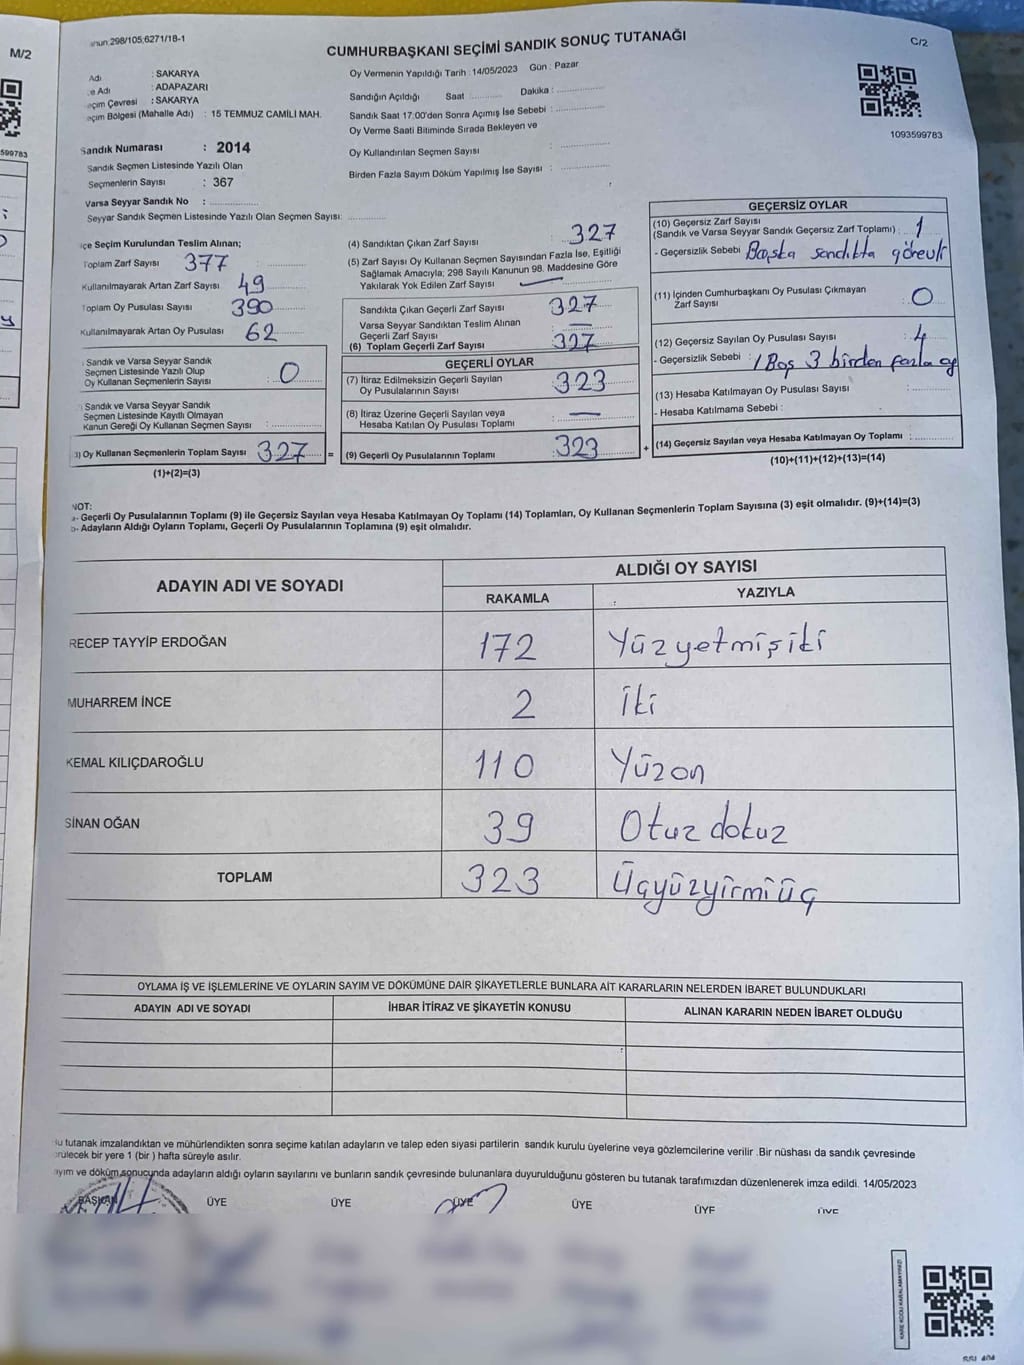 M/2
599783
298/105;6271/18-1
CUMHURBAŞKANI SEÇİMİ SANDIK SONUÇ TUTANAĞI
C/2
Adı : SAKARYA
Adı : ADAPAZARI
Çevresi : SAKARYA
Bölgesi (Mahalle Adı) : 15 TEMMUZ CAMİLİ MAH.
Sandık Numarası : 2014
Sandık Seçmen Listesinde Yazılı Olan
Seçmenlerin Sayısı : 367
Varsa Seyyar Sandık No :
Seyyar Sandık Seçmen Listesinde Yazılı Olan Seçmen Sayısı:
Oy Vermenin Yapıldığı Tarih : 14/05/2023 Gün : Pazar
Sandığın Açıldığı Saat Dakika :
Sandık Saat 17:00'den Sonra Açımış İse Sebebi :
Oy Verme Saati Bitiminde Sırada Bekleyen ve
Oy Kullandırılan Seçmen Sayısı :
Birden Fazla Sayım Döküm Yapılmış İse Sayısı :
1093599783
Seçim Kurulundan Teslim Alınan;
Toplam Zarf Sayısı 377
Kullanılmayarak Artan Zarf Sayısı 49
Toplam Oy Pusulası Sayısı 390
Kullanılmayarak Artan Oy Pusulası 62
Sandık ve Varsa Seyyar Sandık
Seçmen Listesinde Yazılı Olup
Oy Kullanan Seçmenlerin Sayısı : 0
Sandık ve Varsa Seyyar Sandık
Seçmen Listesinde Kayıtlı Olmayan
Kanun Gereği Oy Kullanan Seçmen Sayısı :
3) Oy Kullanan Seçmenlerin Toplam Sayısı 327 =
(1)+(2)=(3)
(4) Sandıktan Çıkan Zarf Sayısı 327
(5) Zarf Sayısı Oy Kullanan Seçmen Sayısından Fazla İse, Eşitliği
Sağlamak Amacıyla; 298 Sayılı Kanunun 98. Maddesine Göre
Yakılarak Yok Edilen Zarf Sayısı —
Sandıkta Çıkan Geçerli Zarf Sayısı 327
Varsa Seyyar Sandıktan Teslim Alınan
Geçerli Zarf Sayısı —
(6) Toplam Geçerli Zarf Sayısı 327
GEÇERLİ OYLAR
(7) İtiraz Edilmeksizin Geçerli Sayılan
Oy Pusulalarının Sayısı 323
(8) İtiraz Üzerine Geçerli Sayılan veya
Hesaba Katılan Oy Pusulası Toplamı —
(9) Geçerli Oy Pusulalarının Toplamı : 323 +
GEÇERSİZ OYLAR
(10) Geçersiz Zarf Sayısı
(Sandık ve Varsa Seyyar Sandık Geçersiz Zarf Toplamı) : 1
- Geçersizlik Sebebi : Başka sandıkta görevli
(11) İçinden Cumhurbaşkanı Oy Pusulası Çıkmayan
Zarf Sayısı : 0
(12) Geçersiz Sayılan Oy Pusulası Sayısı : 4
- Geçersizlik Sebebi : 1 Boş 3 birden fazla oy
(13) Hesaba Katılmayan Oy Pusulası Sayısı :
- Hesaba Katılmama Sebebi :
(14) Geçersiz Sayılan veya Hesaba Katılmayan Oy Toplamı :
(10)+(11)+(12)+(13)=(14)
NOT:
a- Geçerli Oy Pusulalarının Toplamı (9) ile Geçersiz Sayılan veya Hesaba Katılmayan Oy Toplamı (14) Toplamları, Oy Kullanan Seçmenlerin Toplam Sayısına (3) eşit olmalıdır. (9)+(14)=(3)
b- Adayların Aldığı Oyların Toplamı, Geçerli Oy Pusulalarının Toplamına (9) eşit olmalıdır.
ADAYIN ADI VE SOYADI
ALDIĞI OY SAYISI
RAKAMLA YAZIYLA
RECEP TAYYİP ERDOĞAN 172 Yüzyetmişiki
MUHARREM İNCE 2 İki
KEMAL KILIÇDAROĞLU 110 Yüzon
SİNAN OĞAN 39 Otuz dokuz
TOPLAM 323 Üçyüzyirmiüç
OYLAMA İŞ VE İŞLEMLERİNE VE OYLARIN SAYIM VE DÖKÜMÜNE DAİR ŞİKAYETLERLE BUNLARA AİT KARARLARIN NELERDEN İBARET BULUNDUKLARI
ADAYIN ADI VE SOYADI İHBAR İTİRAZ VE ŞİKAYETİN KONUSU ALINAN KARARIN NEDEN İBARET OLDUĞU
Bu tutanak imzalandıktan ve mühürlendikten sonra seçime katılan adayların ve talep eden siyasi partilerin sandık kurulu üyelerine veya gözlemcilerine verilir .Bir nüshası da sandık çevresinde
görülecek bir yere 1 (bir ) hafta süreyle asılır.
Sayım ve döküm sonucunda adayların aldığı oyların sayılarını ve bunların sandık çevresinde bulunanlara duyurulduğunu gösteren bu tutanak tarafımızdan düzenlenerek imza edildi. 14/05/2023
BAŞKAN ÜYE ÜYE ÜYE ÜYE ÜYE ÜYE
KARE KODU KARALAMAYINIZ!